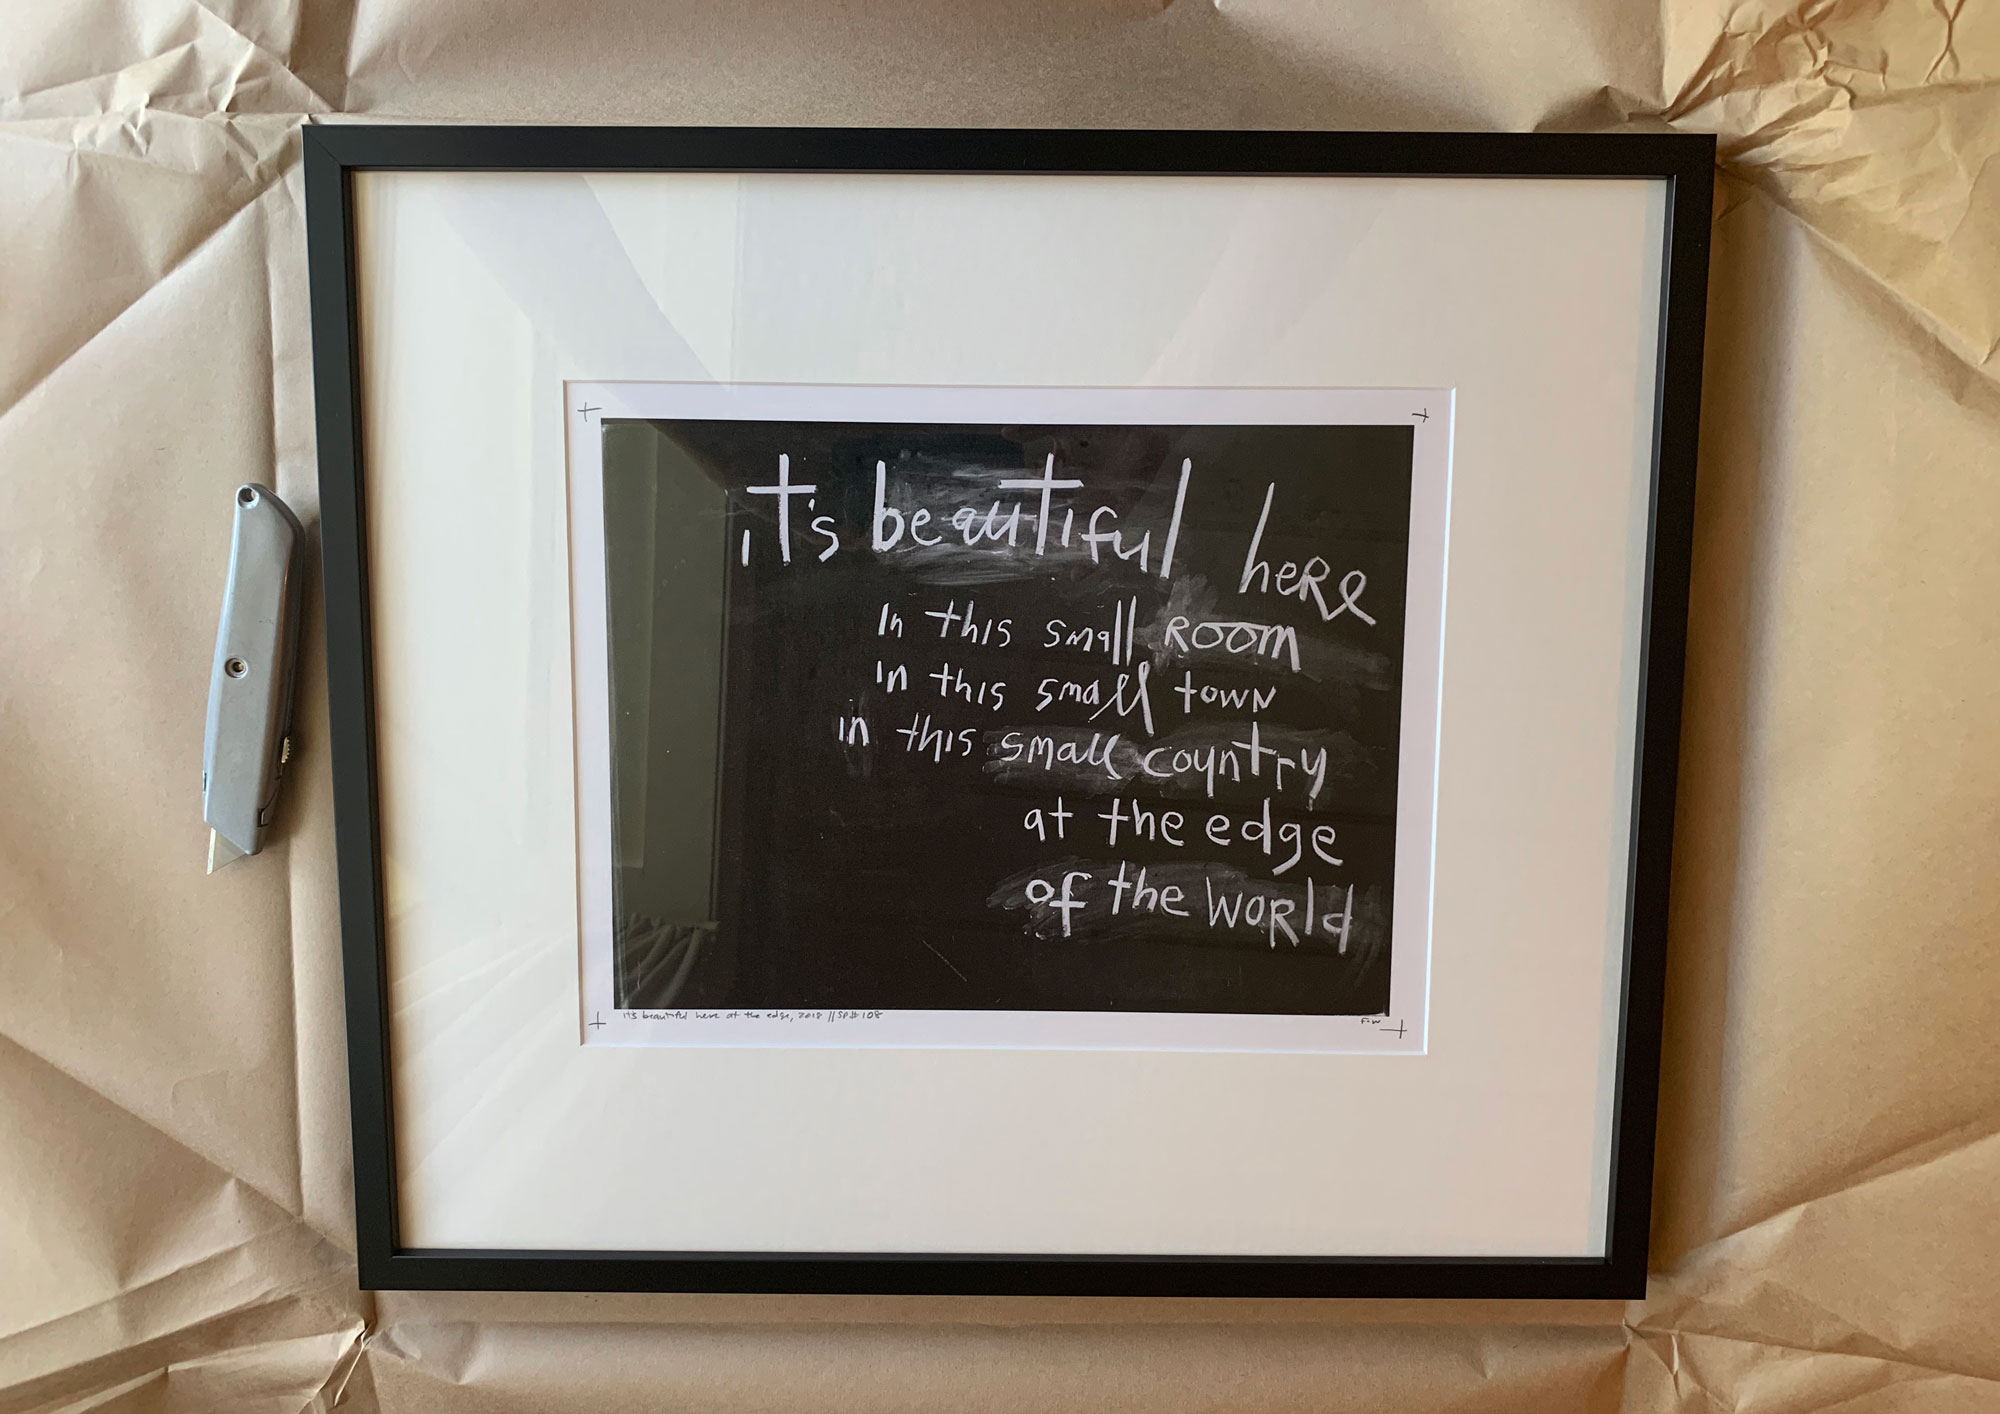 it's beautiful here
in this small room
in this small town
in this small country
at the edge
of the world
it's beautiful here at the edge, 2018 // SP# 108